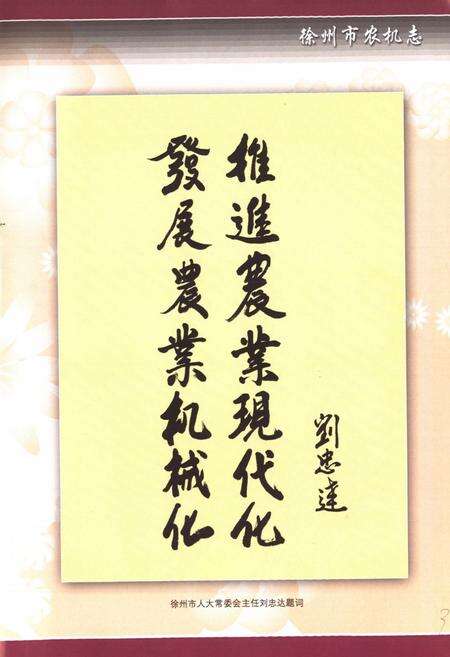 徐州市农机志
發展農業机械化
推進農業現代化
劉忠達
徐州市人大常委会主任刘忠达题词
3